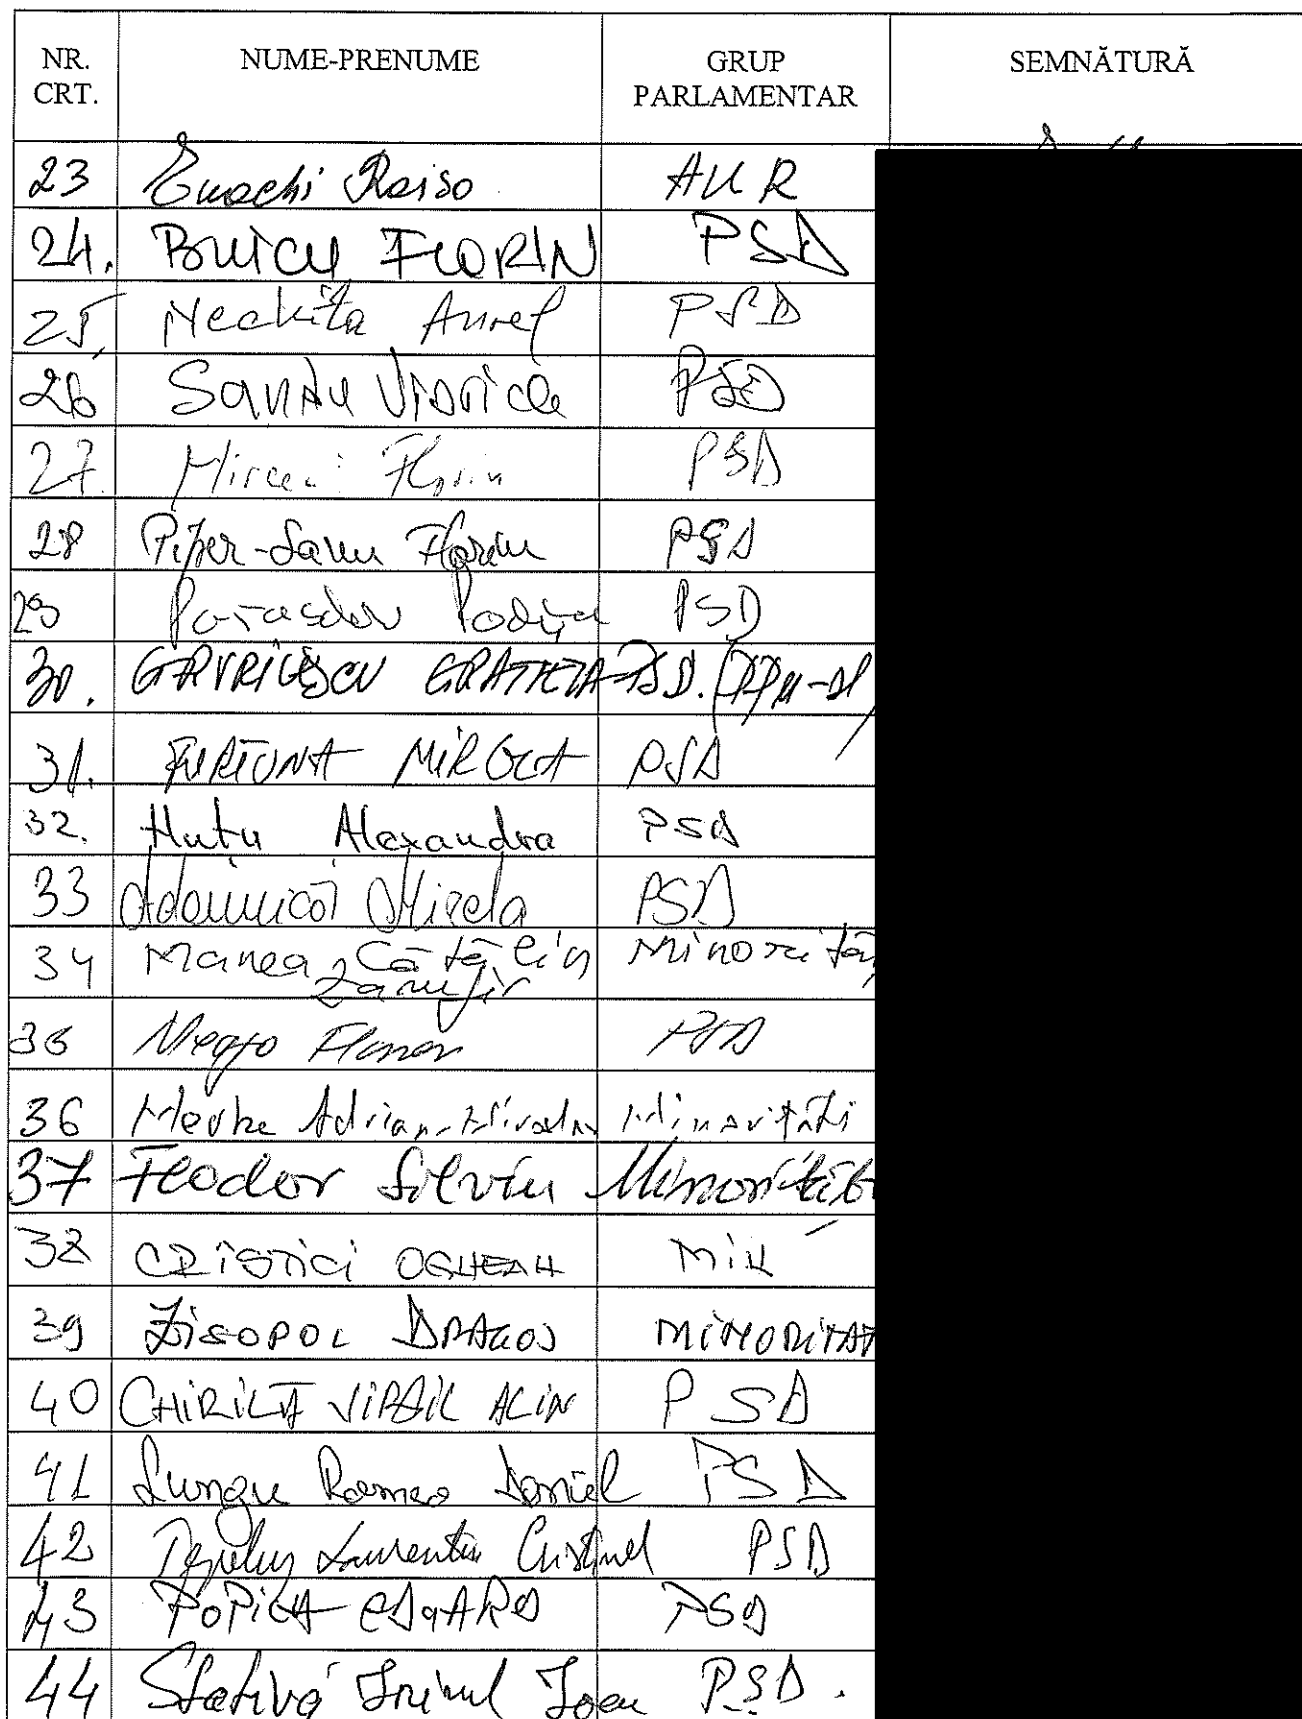 NR. CRT. NUME-PRENUME GRUP PARLAMENTAR SEMNĂTURĂ
23 Enachi Raisa AUR
24. BUICU FLORIN PSD
25. Nechita Aurel PSD
26 Sandu Viorica PSD
27. Mircea Florin PSD
28 Piper-Savu Florin PSD
29 Paraschiv Rodica PSD
30. GAVRILESCU GRATIELA PSD. (PPU-SL)
31. FURTUNĂ MIRELA PSD
32. Hutu Alexandra PSD
33 Adomnicăi Mirela PSD
34 Manea Cătălin Minorită
Zamfir
35 Neața PSD
36 Merka Adrian-Miroslav Minorități
37 Feodor Silviu Minorităti
38 CRISTICI OGHEAN MIN
39 ZISOPOL DRAGOS MINORITAT
40 CHIRILĂ VIRGIL ALIN PSD
41 Lungu Romeo Daniel PSD
42 Țepeluș Laurentiu Cristinel PSD
43 POPICA EDUARD PSD
44 Stativă Irinel Ioan PSD.